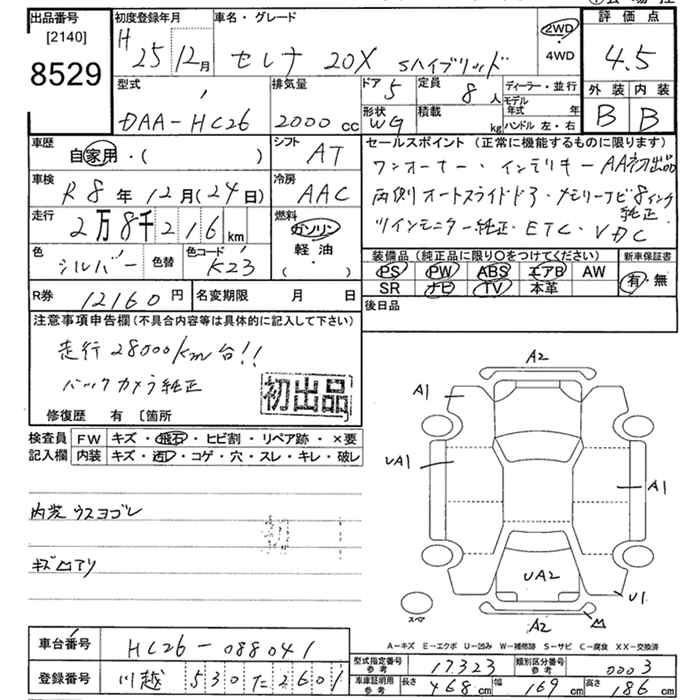 出品番号 [2140] 8529
初度登録年月 H 25年 12月
車名・グレード セレナ 20X Sハイブリッド
2WD・4WD
評価点 4.5
外装 B 内装 B
型式 DAA-HC26
排気量 2000 cc
ドア 5 定員 8人
形状 WG 積載 kg
ディーラー・並行
モデル年式 年
ハンドル 左・右
車歴 自家用・( )
シフト AT
車検 R8年12月(24日)
冷房 AAC
走行 2万8千216 km
燃料 ガソリン 軽油 ( )
色 シルバー 色替 色コード K23
R券 12160円
名変期限 月 日
セールスポイント(正常に機能するものに限ります)
ワンオーナー・インテリキー AA初出品
両側オートスライドドア・メモリーナビ8インチ純正
ツインモニター純正・ETC・VDC
装備品(純正品に限り○をつけてください)
PS PW ABS エアB AW
SR ナビ TV 本革
新車保証書 有・無
後日品
注意事項申告欄(不具合内容等は具体的に記入して下さい)
走行28000km台!!
バックカメラ純正
初出品
修復歴 有 〔箇所
検査員記入欄
FW キズ・飛石・ヒビ割・リペア跡・×要
内装 キズ・汚レ・コゲ・穴・スレ・キレ・破レ
内装ウスヨゴレ
キズ凹アリ
A2
A1
UA1
A1
UA2
U1
A2
スペア
A-キズ E-エクボ U-凹み W-補修跡 S-サビ C-腐食 XX-交換済
車台番号 HC26-088041
登録番号 川越 530 た 2601
型式指定番号参考 17323 類別区分番号参考 0003
車庫証明用参考 長さ 468cm 幅 169cm 高さ 186cm